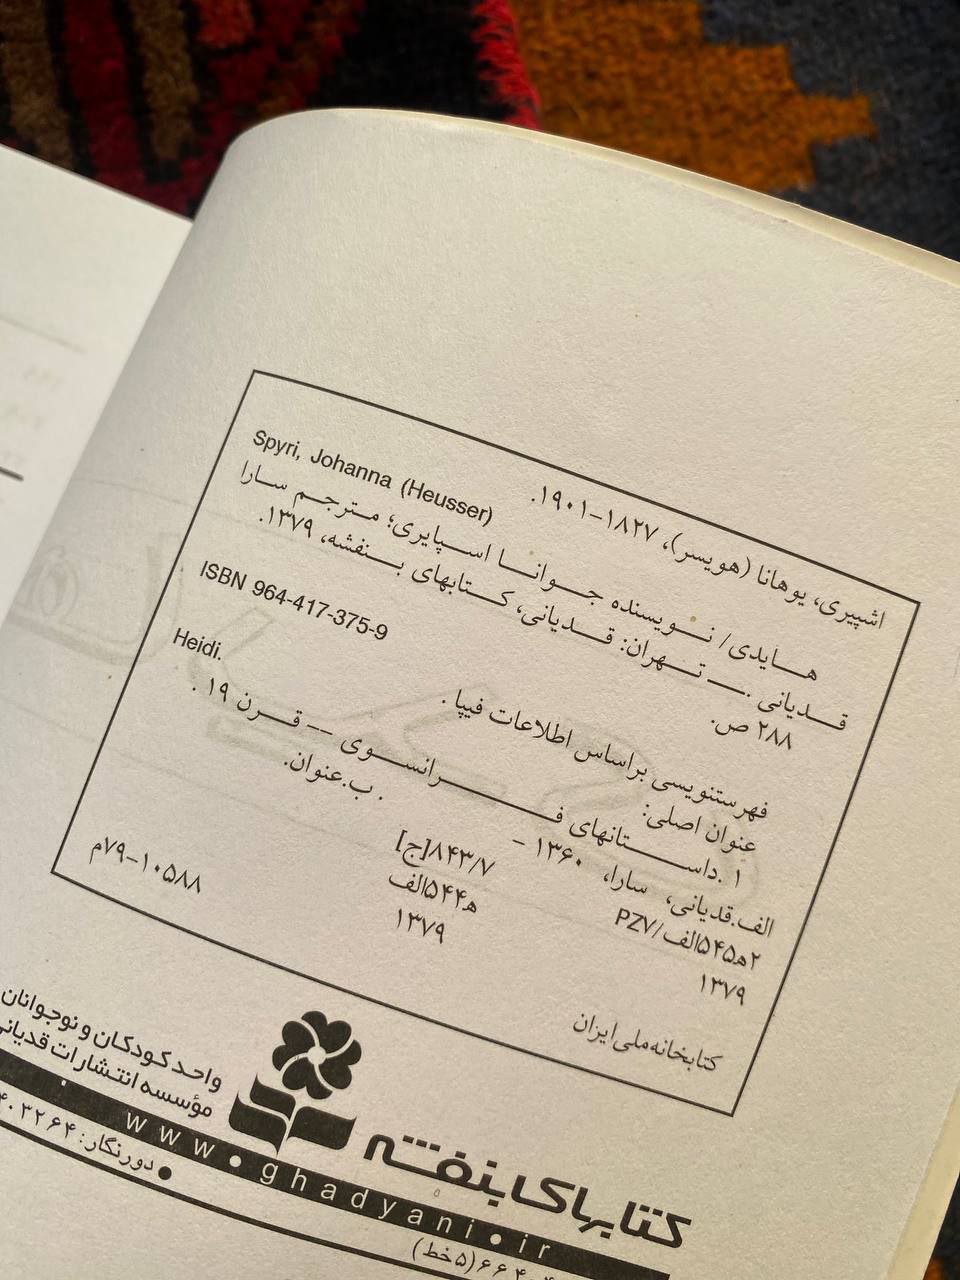 اشپیری، یوهانا (هویسر)، ۱۸۲۷–۱۹۰۱.
Spyri, Johanna (Heusser)
هایدی/ نویسنده جوانا اسپایری؛ مترجم سارا
قدیانی .ـــ تهران: قدیانی، کتابهای بنفشه، ۱۳۷۹.
۲۸۸ ص.
ISBN 964-417-375-9
فهرستنویسی براساس اطلاعات فیپا .
عنوان اصلی: Heidi.
۱ .داستانهای فرانسوی –– قرن ۱۹ .
الف.قدیانی، سارا، ۱۳۶۰ – . ب.عنوان.
۲ه۵۴۵الف/PZ۷ ۸۴۳/۷[ج]
۱۳۷۹ ه۵۴۴الف
۱۳۷۹
کتابخانه ملی ایران ۱۰۵۸۸–۷۹م
کتابهای بنفشه
واحد کودکان و نوجوانان
مؤسسه انتشارات قدیانی
www.ghadyani.ir
(۵ خط) دورنگار: ۴۰۳۲۶۴